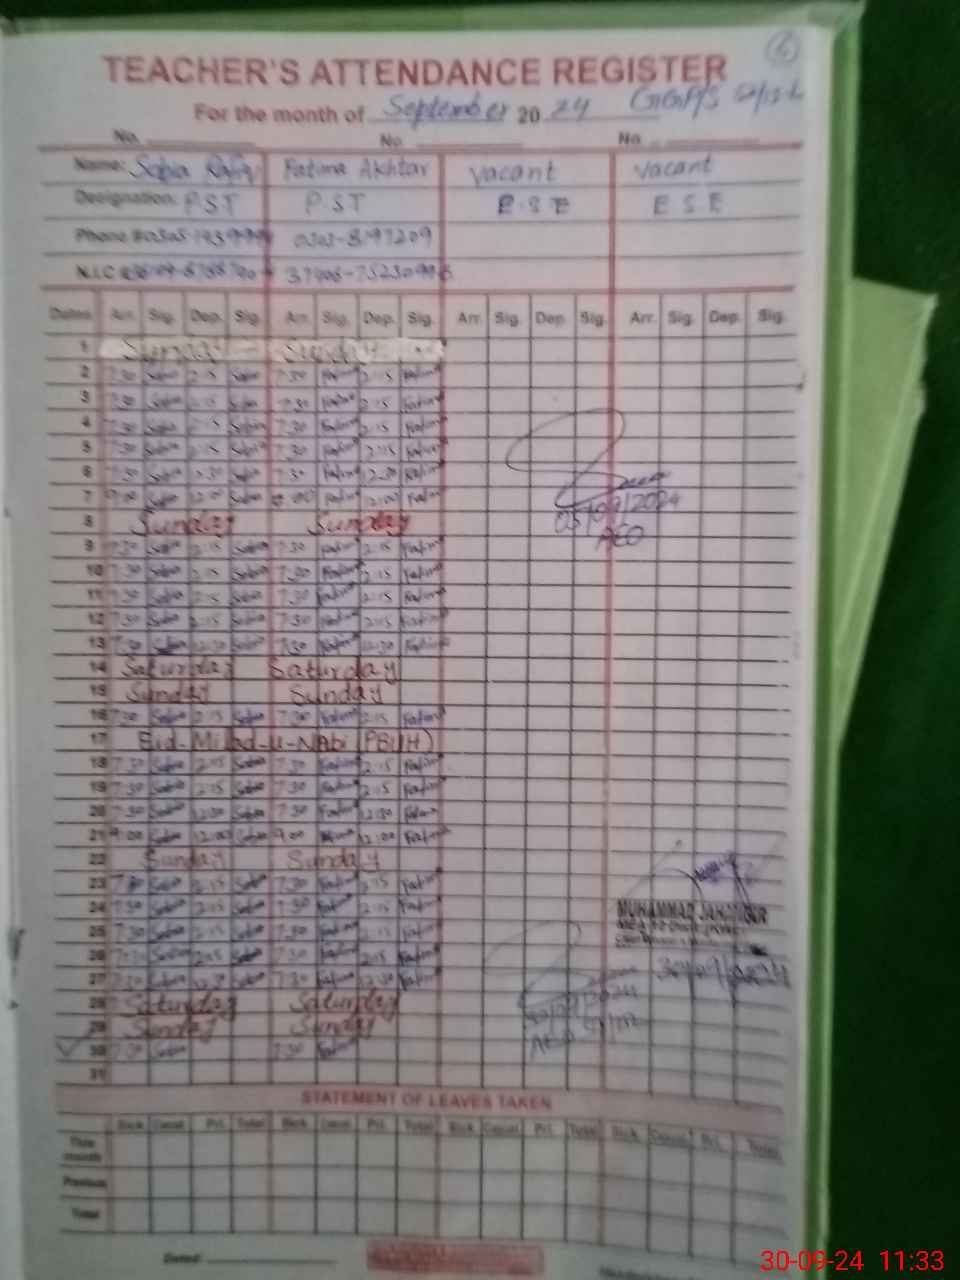 6
TEACHER'S ATTENDANCE REGISTER
For the month of September 2024 GGPS 52/12-L
No. No No
Name: Sobia Rafiq Fatima Akhtar Vacant Vacant
Designation. P.S.T P.S.T E.S.E E S E
Phone # 0303-8197209
N.I.C #
Dates Arr. Sig. Dep. Sig. Arr. Sig. Dep. Sig. Arr. Sig. Dep. Sig. Arr. Sig. Dep. Sig.
1 Sunday Sunday
2 7:30 Sobia 2:15 Sobia 7:30 Fatima 2:15 Fatima
3 7:30 Sobia 2:15 Sobia 7:30 Fatima 2:15 Fatima
4 7:30 Sobia 2:15 Sobia 7:30 Fatima 2:15 Fatima
5 7:30 Sobia 2:15 Sobia 7:30 Fatima 2:15 Fatima
6 7:30 Sobia 12:30 Sobia 7:30 Fatima 12:30 Fatima
7 9:00 Sobia 12:00 Sobia 9:00 Fatima 12:00 Fatima
05/09/2024
8 Sunday Sunday
AEO
9 7:30 Sobia 2:15 Sobia 7:30 Fatima 2:15 Fatima
10 7:30 Sobia 2:15 Sobia 7:30 Fatima 2:15 Fatima
11 7:30 Sobia 2:15 Sobia 7:30 Fatima 2:15 Fatima
12 7:30 Sobia 2:15 Sobia 7:30 Fatima 2:15 Fatima
13 7:30 Sobia 12:30 Sobia 7:30 Fatima 12:30 Fatima
14 Saturday Saturday
15 Sunday Sunday
16 7:30 Sobia 2:15 Sobia 7:30 Fatima 2:15 Fatima
17 Eid-Milad-u-Nabi (PBUH)
18 7:30 Sobia 2:15 Sobia 7:30 Fatima 2:15 Fatima
19 7:30 Sobia 2:15 Sobia 7:30 Fatima 2:15 Fatima
20 7:30 Sobia 12:30 Sobia 7:30 Fatima 12:30 Fatima
21 9:00 Sobia 12:00 Sobia 9:00 Fatima 12:00 Fatima
22 Sunday Sunday
23 7:30 Sobia 2:15 Sobia 7:30 Fatima 2:15 Fatima
24 7:30 Sobia 2:15 Sobia 7:30 Fatima 2:15 Fatima
MUHAMMAD JAHANGIR
25 7:30 Sobia 2:15 Sobia 7:30 Fatima 2:15 Fatima
26 7:30 Sobia 2:15 Sobia 7:30 Fatima 2:15 Fatima
30/09/2024
27 7:30 Sobia 12:30 Sobia 7:30 Fatima 12:30 Fatima
28 Saturday Saturday
30/09/2024
29 Sunday Sunday
AEO
30 7:30 Sobia 7:30 Fatima
31
STATEMENT OF LEAVES TAKEN
Sick Casual Pri. Total Sick Casual Pri. Total Sick Casual Pri. Total Sick Casual Pri. Total
This month
Previous
Total
Dated:
30-09-24 11:33